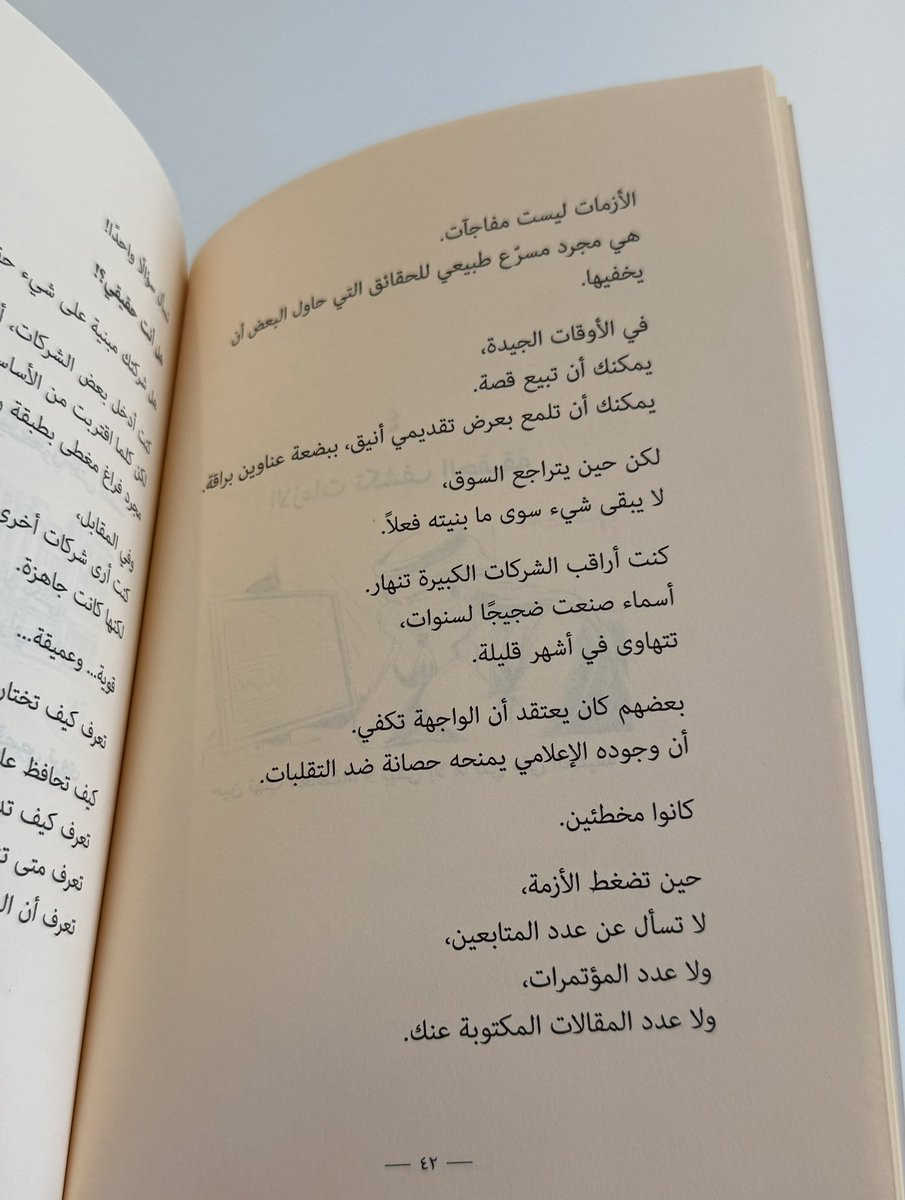 الأزمات ليست مفاجآت.
هي مجرد مسرّع طبيعي للحقائق التي حاول البعض أن
يخفيها.
في الأوقات الجيدة،
يمكنك أن تبيع قصة.
يمكنك أن تلمع بعرض تقديمي أنيق، ببضعة عناوين براقة.
لكن حين يتراجع السوق،
لا يبقى شيء سوى ما بنيته فعلاً.
كنت أراقب الشركات الكبيرة تنهار.
أسماء صنعت ضجيجًا لسنوات،
تتهاوى في أشهر قليلة.
بعضهم كان يعتقد أن الواجهة تكفي.
أن وجوده الإعلامي يمنحه حصانة ضد التقلبات.
كانوا مخطئين.
حين تضغط الأزمة،
لا تسأل عن عدد المتابعين،
ولا عدد المؤتمرات،
ولا عدد المقالات المكتوبة عنك.
— ٤٢ —
سؤالًا واحدًا!
هل أنت حقيقي؟!
هل شركتك مبنية على شيء
كنت أدخل بعض الشركات،
لكن كلما اقتربت من
مجرد فراغ مغطى بطبقة
وفي المقابل،
كنت أرى شركات أخرى
لكنها كانت جاهزة.
قوية... وعميقة...
تعرف كيف تختار
كيف تحافظ
تعرف كيف
تعرف متى
تعرف أن